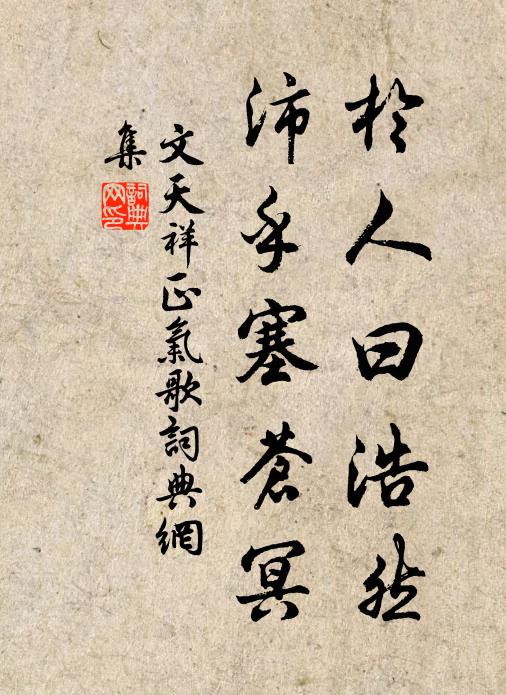 於人曰浩然
沛乎塞蒼冥
文天祥正氣歌詞典網
集
詞典网印